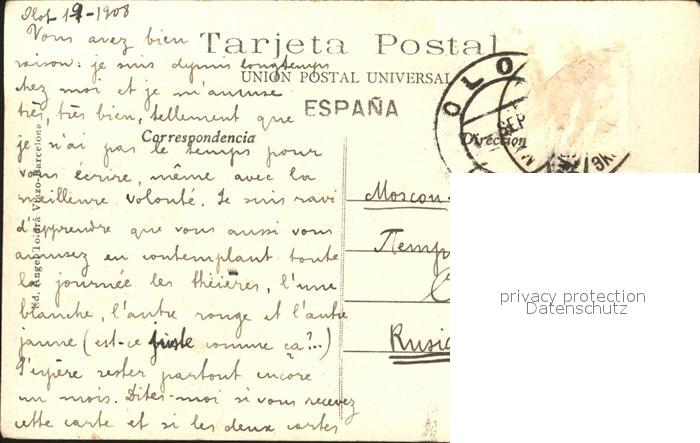 Olot 19-1908
Vous avez bien
raison: je suis depuis longtemps
chez moi et je m'amuse
très, très bien, tellement que
je n'ai pas le temps pour
vous écrire, même avec la
meilleure volonté. Je suis ravi
d'apprendre que vous aussi vous
amusez en contemplant toute
la journée les théières, l'une
blanche, l'autre rouge et l'autre
jaune (est-ce juste comme ça?...)
J'espère rester partout encore
un mois. Dites-moi si vous recevez
cette carte et si les deux cartes
Tarjeta Postal
UNIÓN POSTAL UNIVERSAL
ESPAÑA
Correspondencia
Dirección
OLO
SEP
Ed. Angel Toldrá Viazo-Barcelona
Moscou
Петр
Rusia
privacy protection
Datenschutz